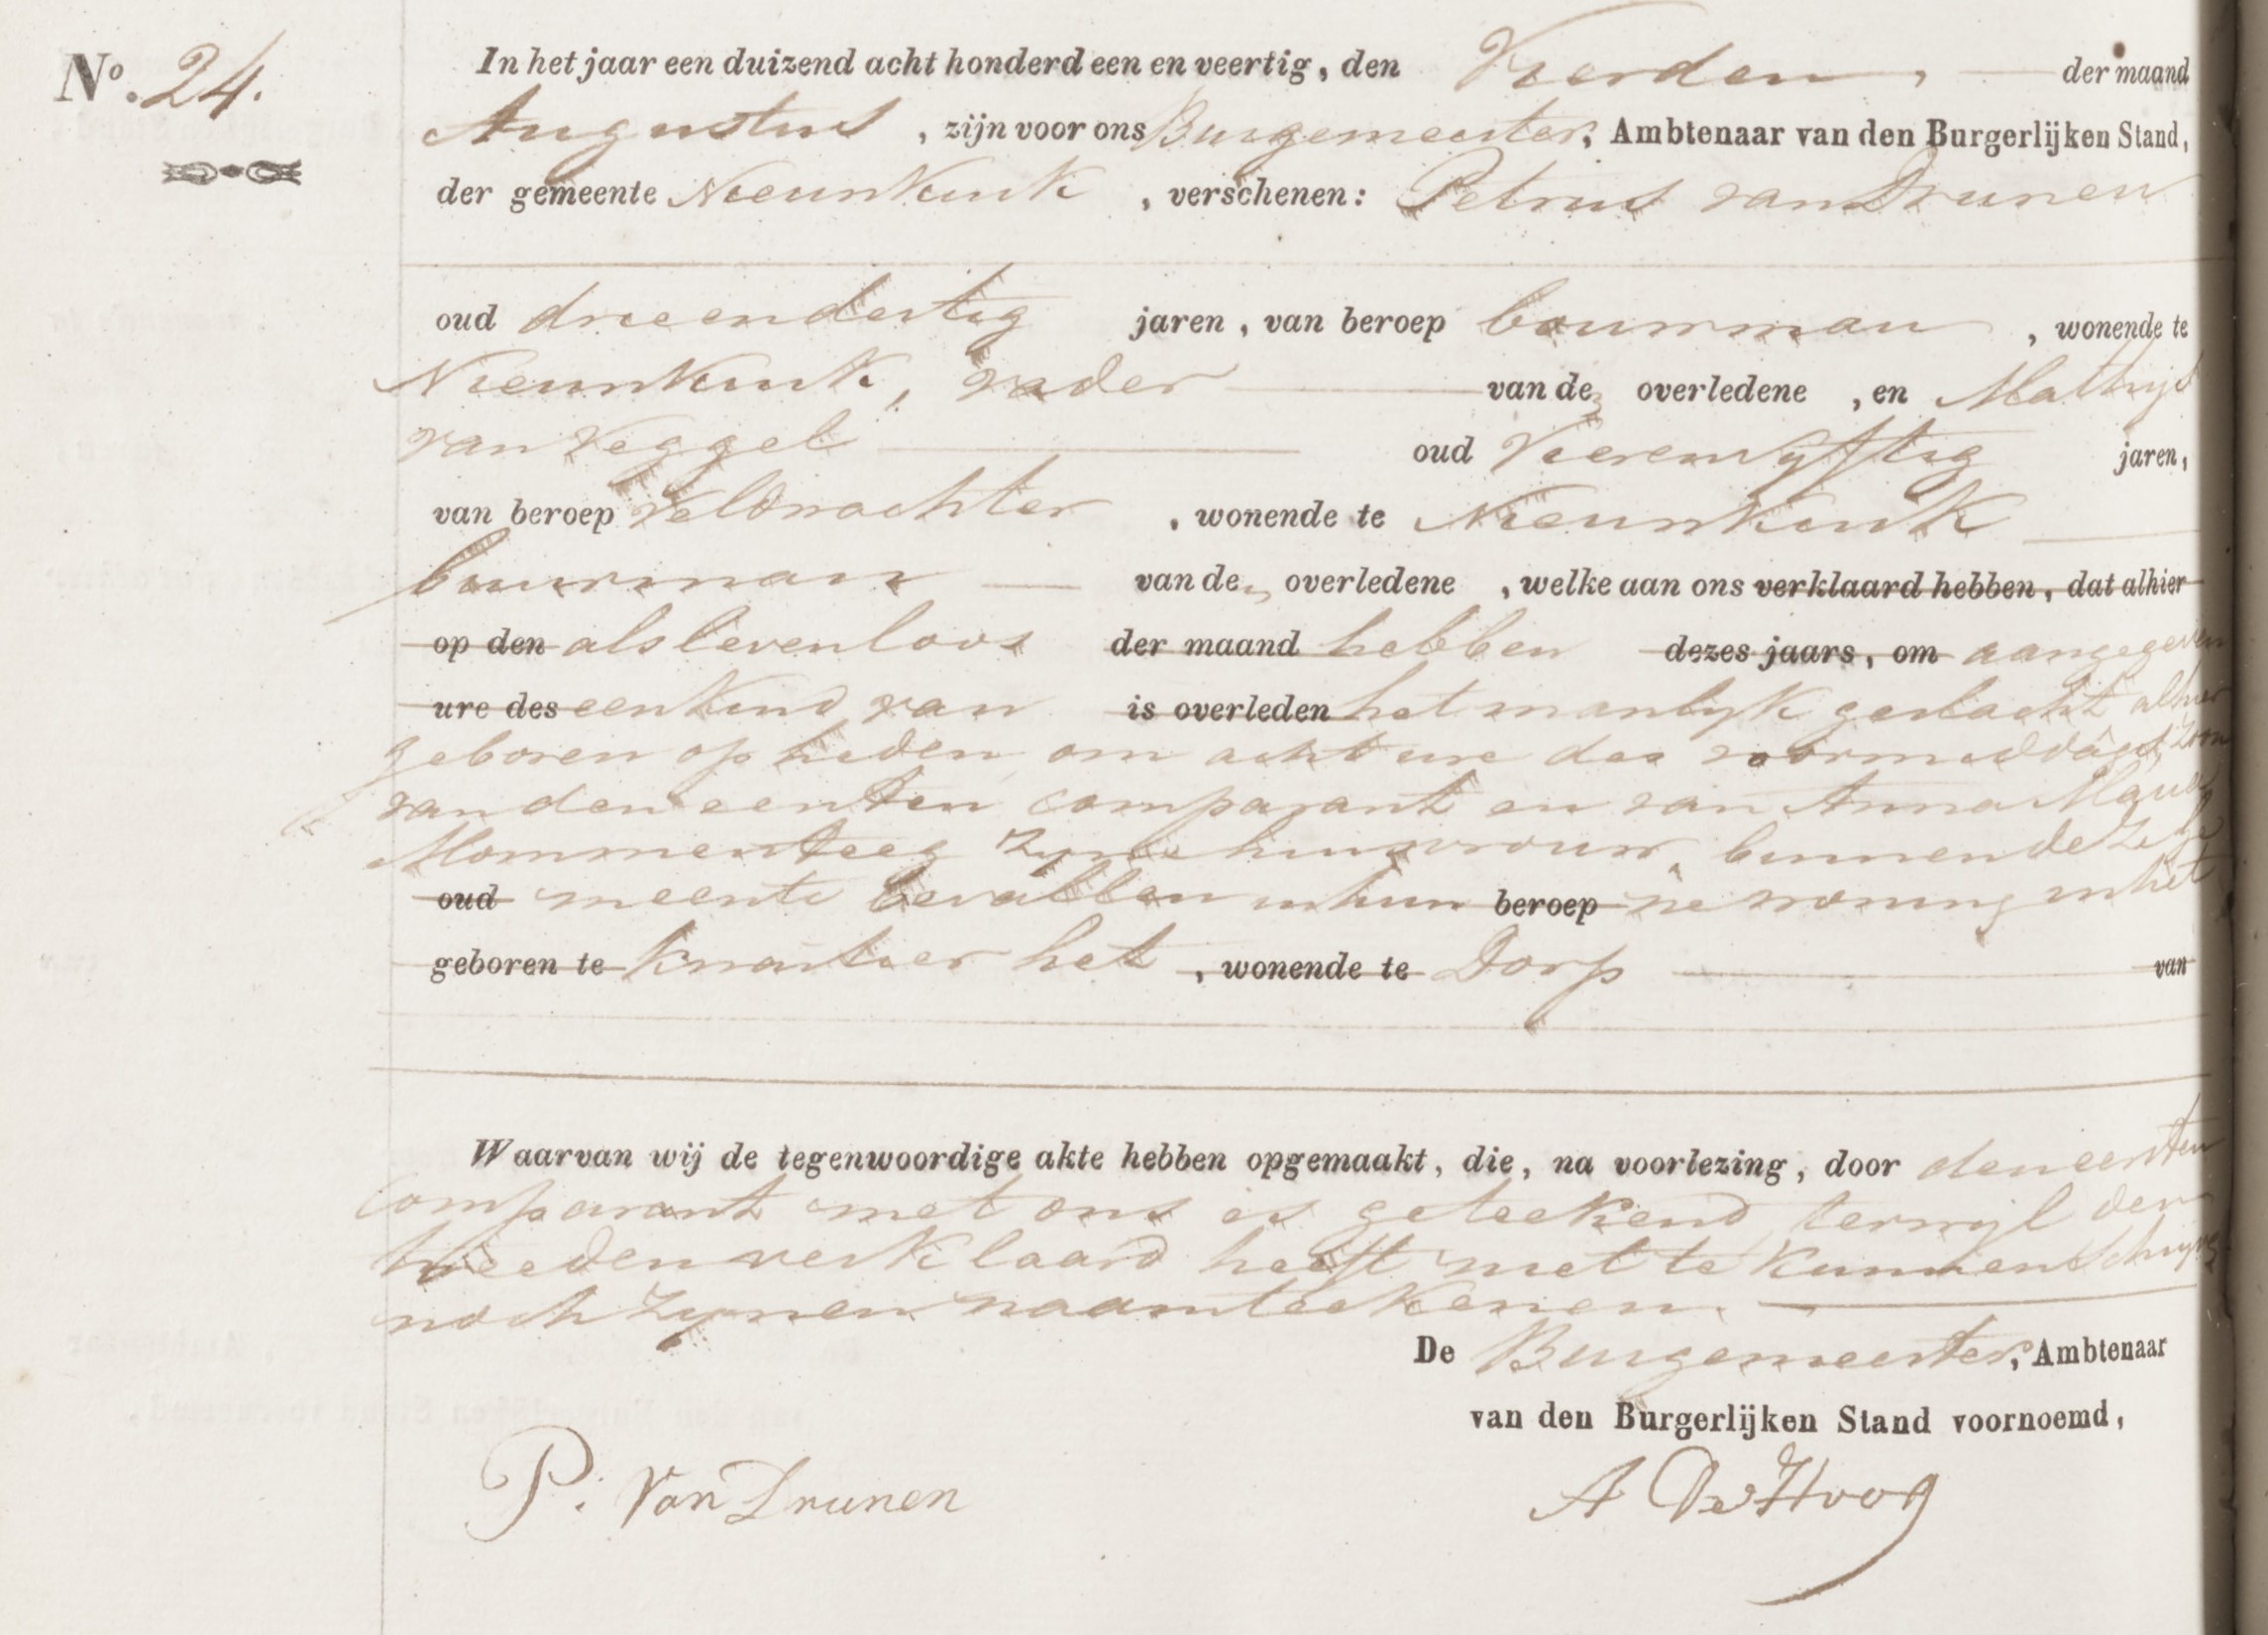 No. 24.
In het jaar een duizend acht honderd een en veertig, den Vierden, der maand
Augustus, zijn voor ons Burgemeester, Ambtenaar van den Burgerlijken Stand,
der gemeente Nieuwkuik, verschenen: Petrus van Drunen
oud drieendertig jaren, van beroep bouwman, wonende te
Nieuwkuik, vader van den overledene, en Mathijs
van Veggel oud Vierenvyftig jaren,
van beroep Veldwachter, wonende te Nieuwkuik
buurman van den overledene, welke aan ons verklaard hebben, dat alhier
op den als levenloos der maand hebben dezes jaars, om aangegeven
ure des een Kind van is overleden het manlyk geslacht alhier
geboren op heden om acht ure des voormiddags, zoon
van den eersten comparant en van Anna Maria
Mommersteeg zyne huisvrouw, binnen deze ge
oud meente bevallen in hun beroep ne woning in het
geboren te kwartier het, wonende te Dorp van
Waarvan wij de tegenwoordige akte hebben opgemaakt, die, na voorlezing, door den eersten
comparant met ons is geteekend, terwyl den
tweeden verklaard heeft niet te kunnen schryven
noch zynen naam teekenen.
De Burgemeester, Ambtenaar
van den Burgerlijken Stand voornoemd,
P. Van Drunen A De Hoog